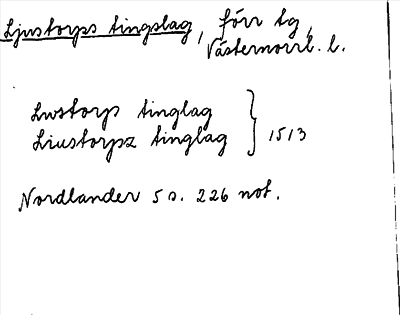 Ljustorps tingslag, förr tg,
Västernorrl. l.
Lwstorp tinglag
Liustorpz tinglag } 1513
Nordlander 5 s. 226 not.